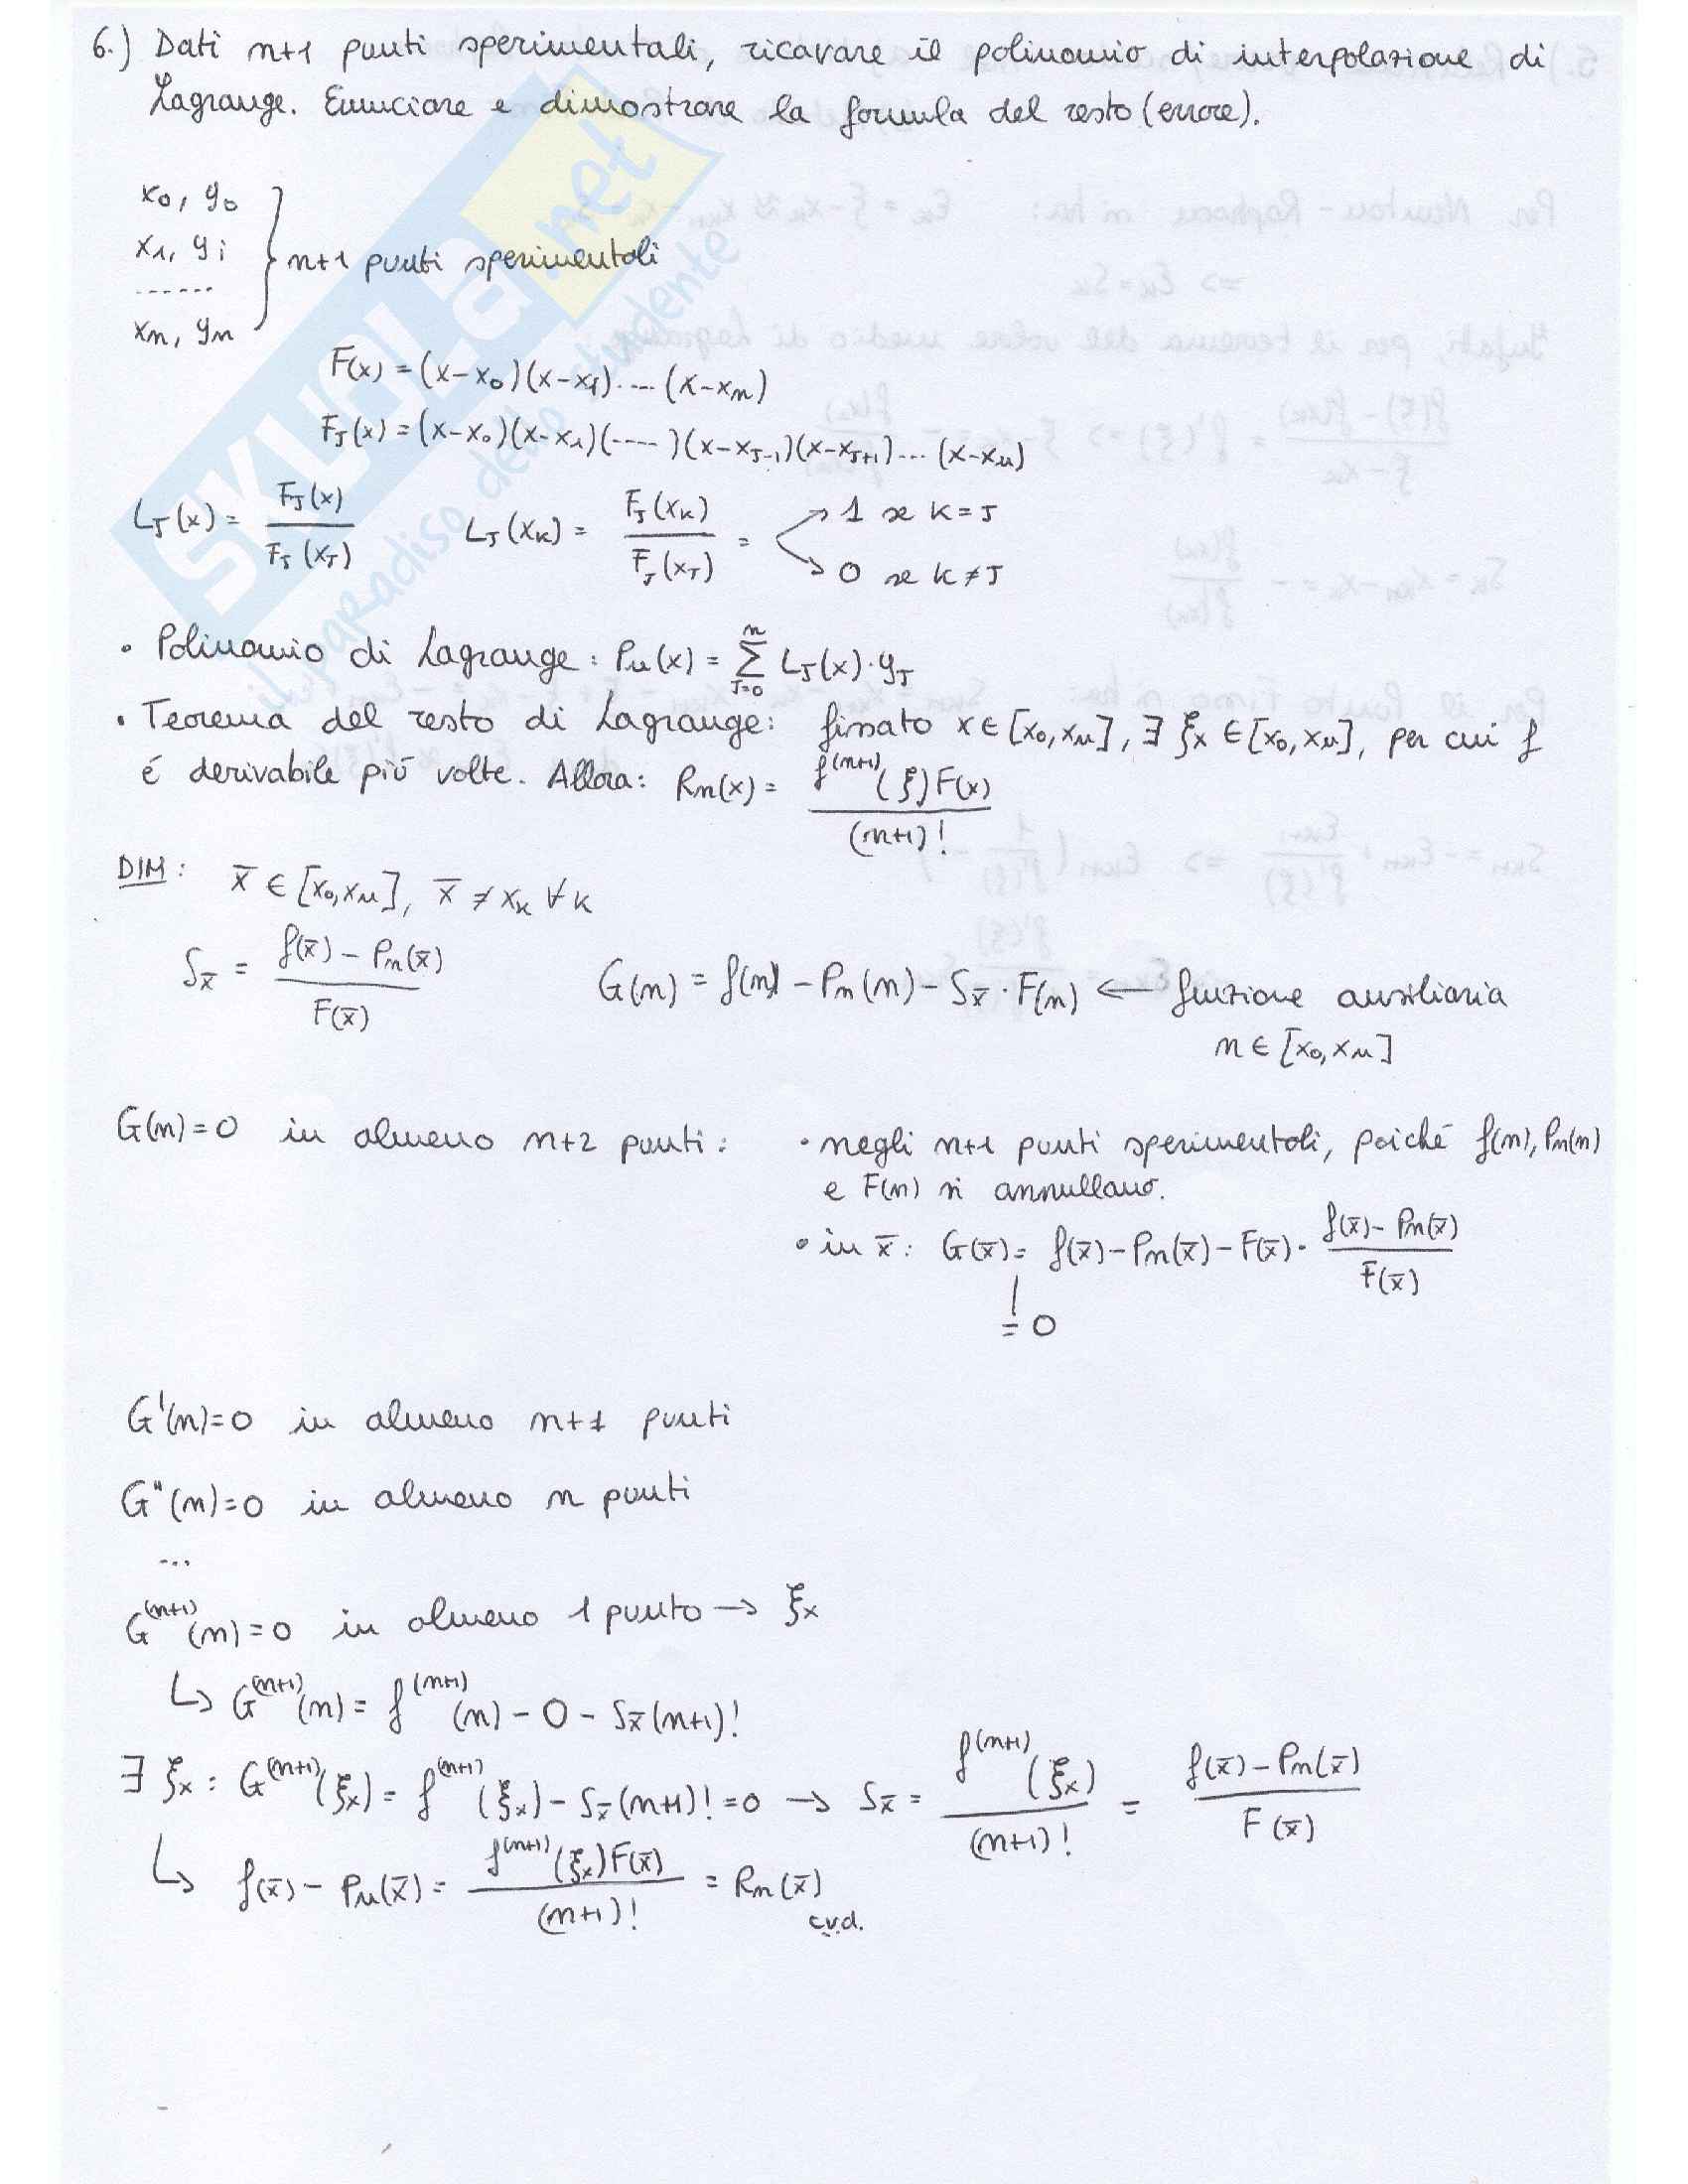 6.) Dati n+1 punti sperimentali, ricavare il polinomio di interpolazione di
Lagrange. Enunciare e dimostrare la formula del resto (errore).
x₀, y₀
x₁, yᵢ
......
xₙ, yₙ
} n+1 punti sperimentali
F(x) = (x-x₀)(x-x₁)....(x-xₙ)
F_J(x) = (x-x₀)(x-x₁)(----)(x-x_{J-1})(x-x_{J+1})...(x-xₙ)
L_J(x) = F_J(x) / F_J(x_J)    L_J(x_K) = F_J(x_K) / F_J(x_J) = ↗ 1 se K=J ↘ 0 se K≠J
• Polinomio di Lagrange: Pₙ(x) = Σ_{J=0}^{n} L_J(x)·y_J
• Teorema del resto di Lagrange: fissato x∈[x₀,xₙ], ∃ ξₓ ∈[x₀,xₙ], per cui f
é derivabile piú volte. Allora: Rₙ(x) = f^{(n+1)}(ξ)F(x) / (n+1)!
DIM: x̄ ∈ [x₀,xₙ], x̄ ≠ x_K ∀ K
S_x̄ = f(x̄) - Pₙ(x̄) / F(x̄)    G(n) = f(n) - Pₙ(n) - S_x̄ · F(n) ← funzione ausiliaria
n ∈ [x₀,xₙ]
G(n)=0 in almeno n+2 punti: • negli n+1 punti sperimentali, poiché f(n), Pₙ(n)
e F(n) si annullano.
• in x̄: G(x̄) = f(x̄)-Pₙ(x̄)-F(x̄)· f(x̄)-Pₙ(x̄) / F(x̄)
= 0
G'(n)=0 in almeno n+1 punti
G"(n)=0 in almeno n punti
...
G^{(n+1)}(n)=0 in almeno 1 punto → ξₓ
↳ G^{(n+1)}(n) = f^{(n+1)}(n) - 0 - S_x̄(n+1)!
∃ ξₓ : G^{(n+1)}(ξₓ) = f^{(n+1)}(ξₓ) - S_x̄(n+1)! = 0 → S_x̄ = f^{(n+1)}(ξₓ) / (n+1)! = f(x̄)-Pₙ(x̄) / F(x̄)
↳ f(x̄) - Pₙ(x̄) = f^{(n+1)}(ξₓ)F(x̄) / (n+1)! = Rₙ(x̄)
c.v.d.
SKUOLA.net
il paradiso dello studente